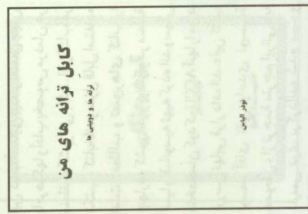 کابل ترانه های من
ترانه ها و دوبیتی ها
نوذر الیاس